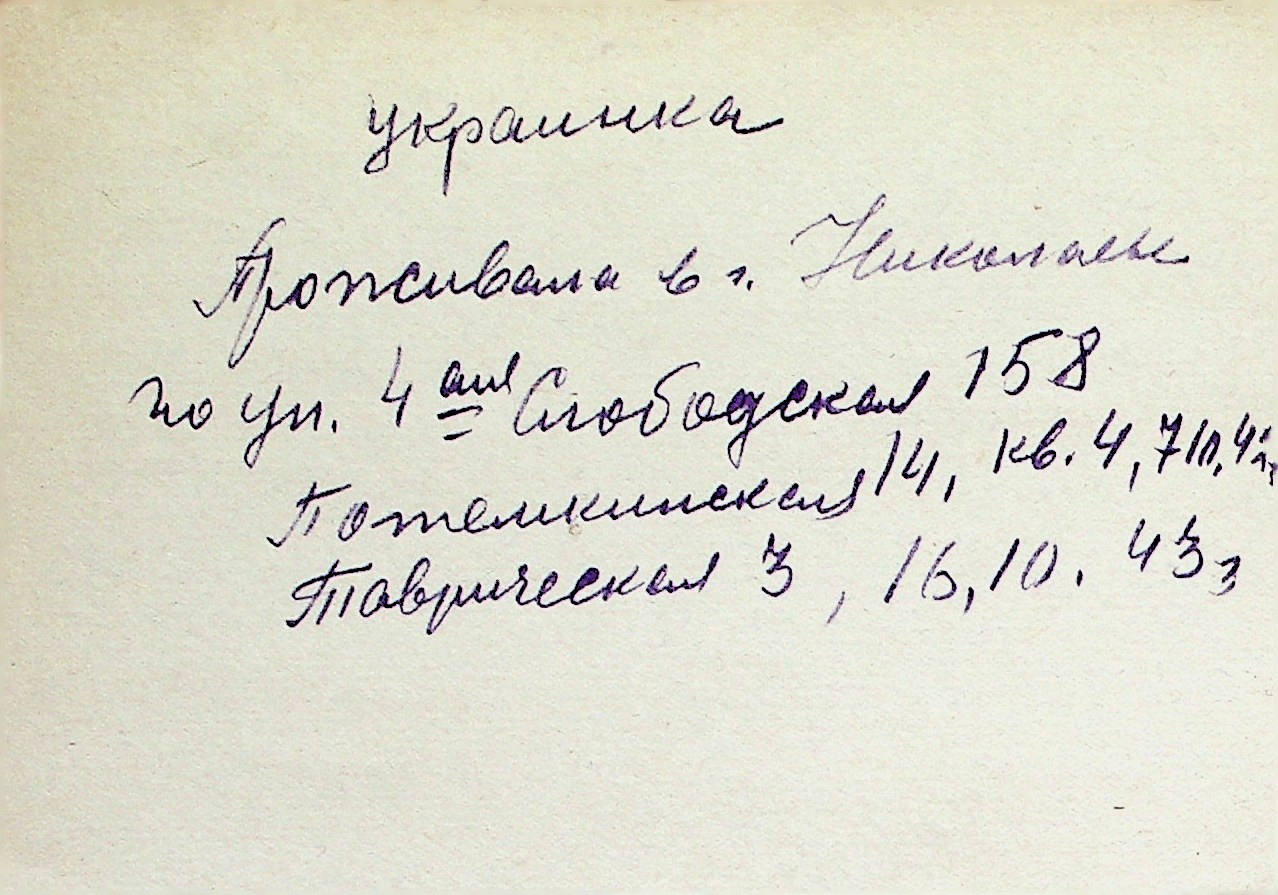 украинка
Проживала в г. Николаеве
по ул. 4 ая Слободская 158
Потемкинская 14, кв. 4, 7/II, 42г
Таврическая 3, 16,10. 43г